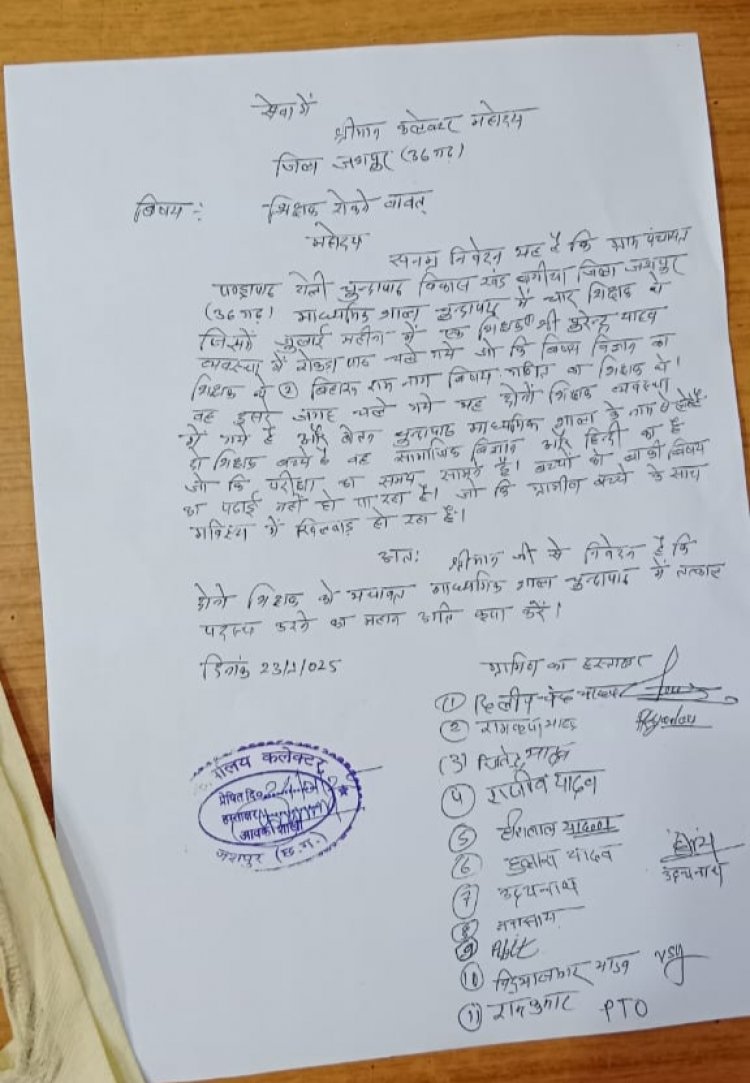 सेवा में
श्रीमान कलेक्टर महोदय
जिला जशपुर (36 गढ़)
विषय :- शिक्षक रोकने वावत्
महोदय
सनम्र निवेदन यह है कि ग्राम पंचायत
पण्ड्रापाठ विकास खंड बगीचा जिला जशपुर
(36 गढ़) माध्यमिक शाला में चार शिक्षक थे
जिसमें जुलाई महीना में एक शिक्षक श्री सुरेन्द्र यादव
व्यवस्था में पाठ चले गये जो कि विषय विज्ञान का
शिक्षक थे ② बिहारू राम नाग विषय गणित का शिक्षक थे।
वह दूसरे जगह चले गये यह दोनों शिक्षक व्यवस्था
में गये है और वेतन माध्यमिक शाला के नाम से
दो शिक्षक बच्चे है वह सामाजिक विज्ञान और हिन्दी का है
जो कि परीक्षा का समय सामने है। बच्चों को बाकी विषय
का पढाई नहीं हो पा रहा है। जो कि ग्रामीन बच्चे के साथ
भविष्य में खिलवाड़ हो रहा है।
अतः श्रीमान जी से निवेदन है कि
दोनो शिक्षक को यथावत माध्यमिक शाला में तत्काल
पदस्थ करने का महान कृपा करें।
दिनांक 23/1/025
ग्रामिन का हस्ताक्षर
① दिलीप
②
(3)
④ राजीव यादव
⑤ हीरालाल यादव
⑥ यादव
⑦ उदयनाथ
उदयनाथ
⑧
⑨
⑩
⑪ रामकुमार
PTO
कलेक्टर
प्रेषित दि.
हस्ताक्षर
आवक शाखा
जशपुर (छ.ग.)